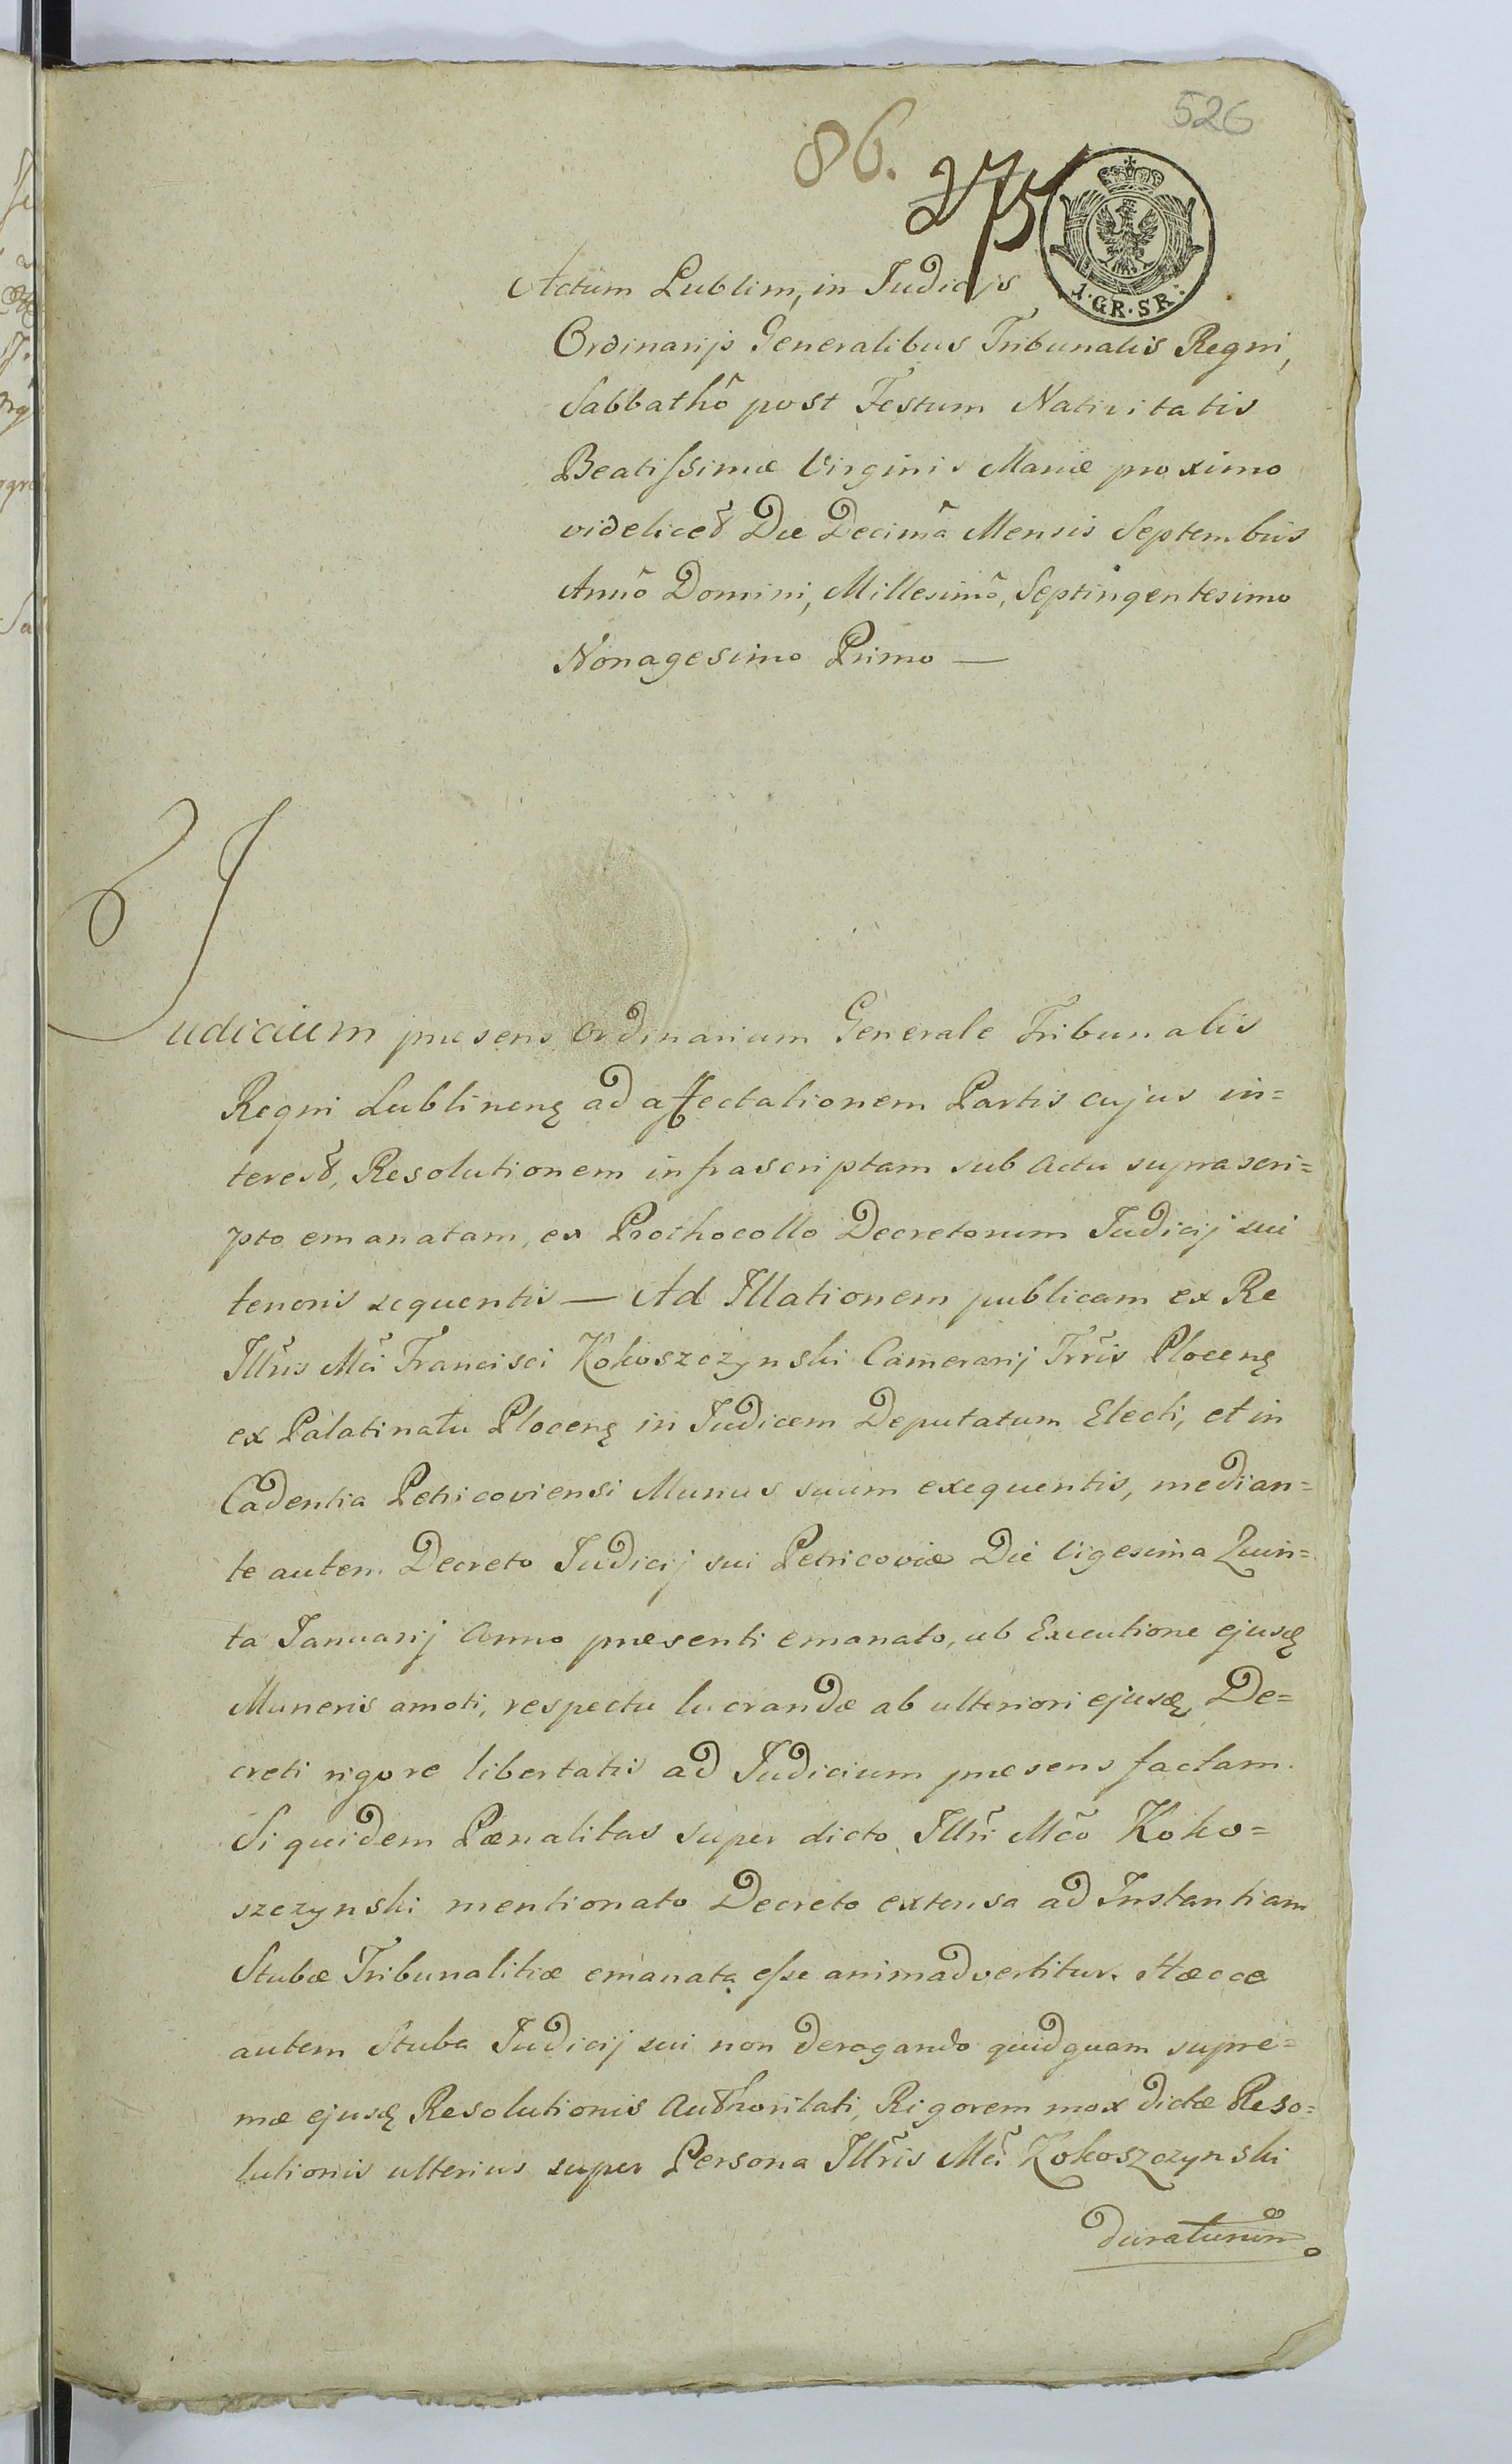 526
86.
275
1·GR·SR·
Actum Lublini, in Judicijs
Ordinarijs Generalibus Tribunalis Regni,
Sabbathô post Festum Nativitatis
Beatissimæ Virginis Mariæ proximo
videlicet Die Decimâ Mensis Septembris
Annô Domini, Millesimô, Septingentesimo
Nonagesimo Primo —
Judicium præsens Ordinarium Generale Tribunalis
Regni Lublinenę ad affectationem Partis cujus in=
terest, Resolutionem infrascriptam sub actu suprascri=
pto emanatam, ex Prothocollo Decretorum Judicij sui
tenoris sequentis — Ad Illationem publicam ex Re
Illr̃is Mci Francisci Kokoszczynski Camerarij Trr̃is Plocenę
ex Palatinatu Plocenę in Judicem Deputatum Electi, et in
Cadentia Petricoviensi Munus suum exequentis, median=
te autem Decreto Judicij sui Petricoviæ Die Vigesima Quin=
ta Januarij Anno præsenti emanato, ab Executione ejusdę
Muneris amoti, respectu lucrandæ ab ulteriori ejusdę De=
creti rigore libertatis ad Judicium præsens factam.
Siquidem Pœnalitas super dicto Illr̃i Mcõ Koko=
szczynski mentionato Decreto extensa ad Instantiam
Stubæ Tribunalitiæ emanata esse animadvertitur. Hæcce
autem Stuba Judicij sui non derogando quidquam supre=
mæ ejusdę Resolutionis Authoritati, Rigorem mox dictæ Reso=
lutionis ulterius super Persona Illr̃is Mci Kokoszczynski
duraturum